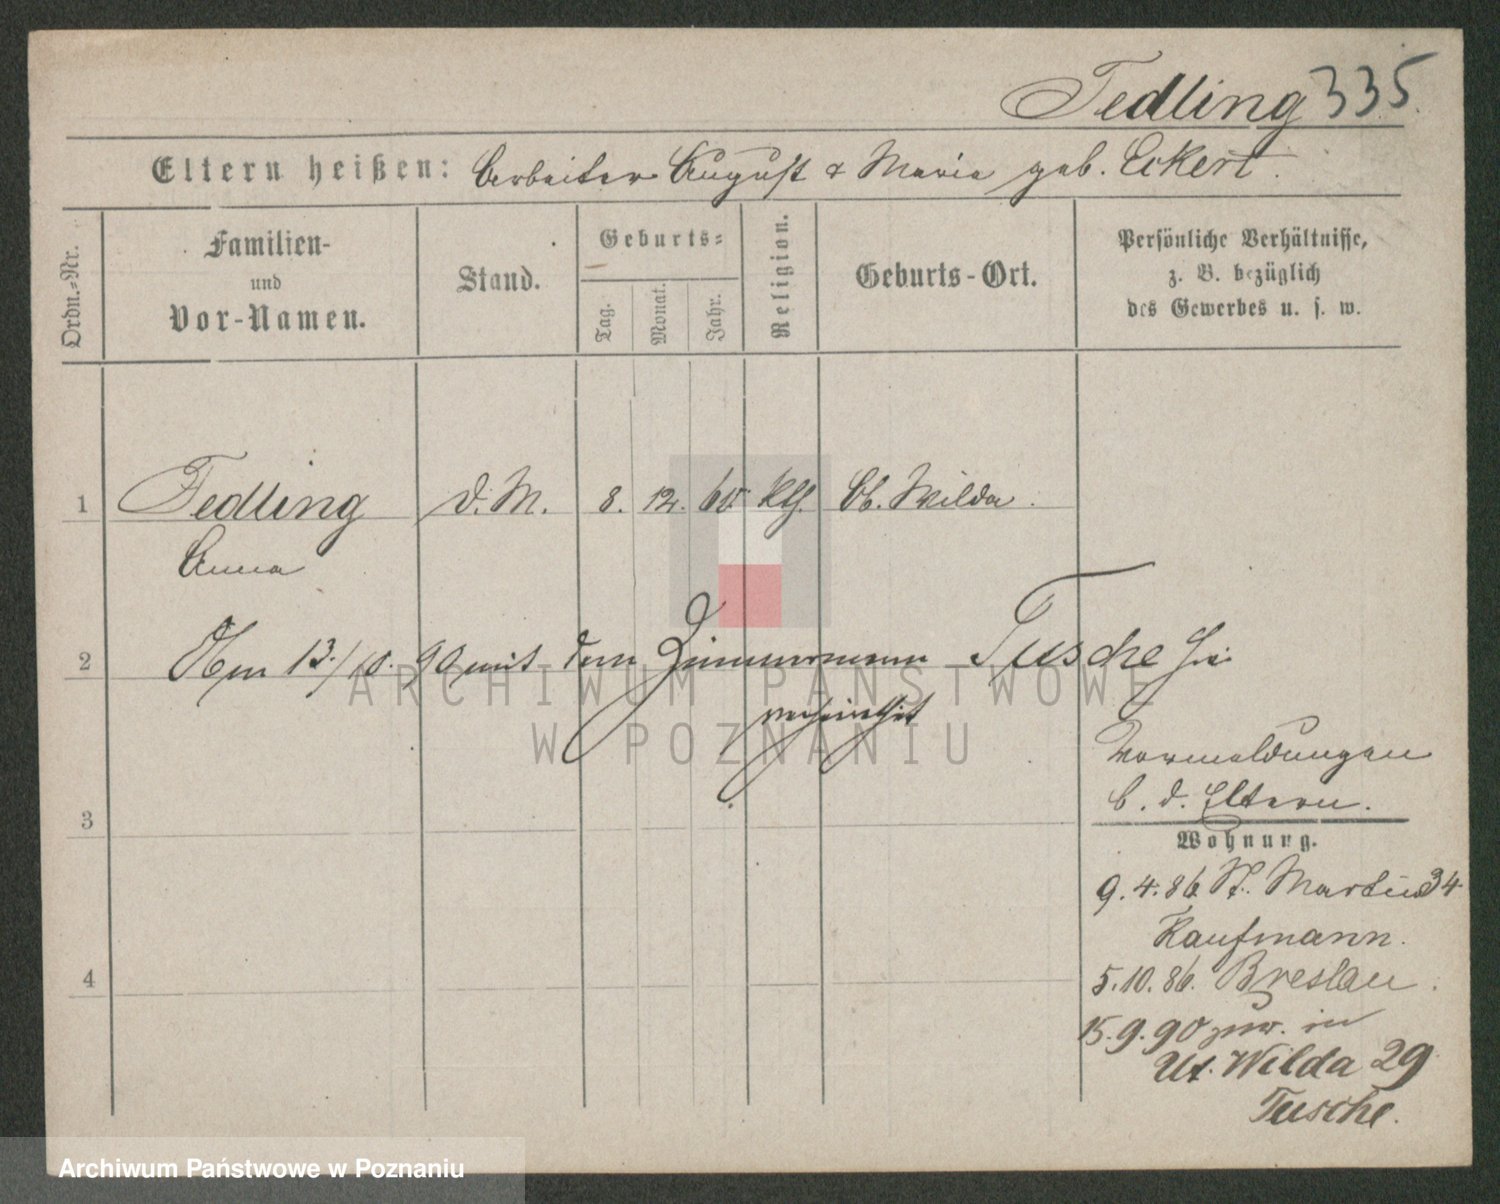 Tedling 335.
Eltern heißen: Arbeiter August & Marie geb. Eckert.
Ordn.-Nr.
Familien-
und
Vor-Namen.
Stand.
Geburts-
Tag.
Monat.
Jahr.
Religion.
Geburts-Ort.
Persönliche Verhältnisse,
z. B. bezüglich
des Gewerbes u. s. w.
1 Tedling d. M. 8. 12. 60 Kth. Ob. Wilda.
Anna
2 Am 13./10. 90 mit dem Zimmermann Tusche hie
verheirathet
Vormeldungen
b. d. Eltern.
3
Wohnung.
9.4.86. St. Martin 34
Kaufmann.
4
5.10.86. Breslau.
15.9.90 zur. in
Ut. Wilda 29
Tusche.
ARCHIWUM PAŃSTWOWE
W POZNANIU
Archiwum Państwowe w Poznaniu